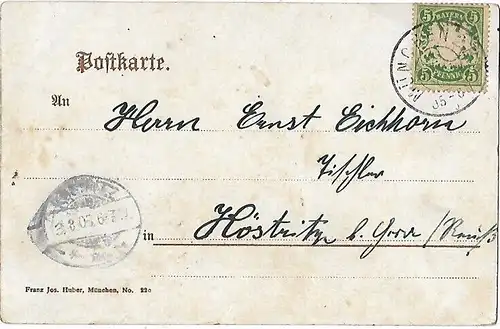 5 BAYERN 5
5 PFENNIG 5
MÜNCHEN
05
Postkarte.
An
Herrn Ernst Eichhorn
Tischler
in Höstritz b. Gera (Reuß)
Franz Jos. Huber, München, No. 220